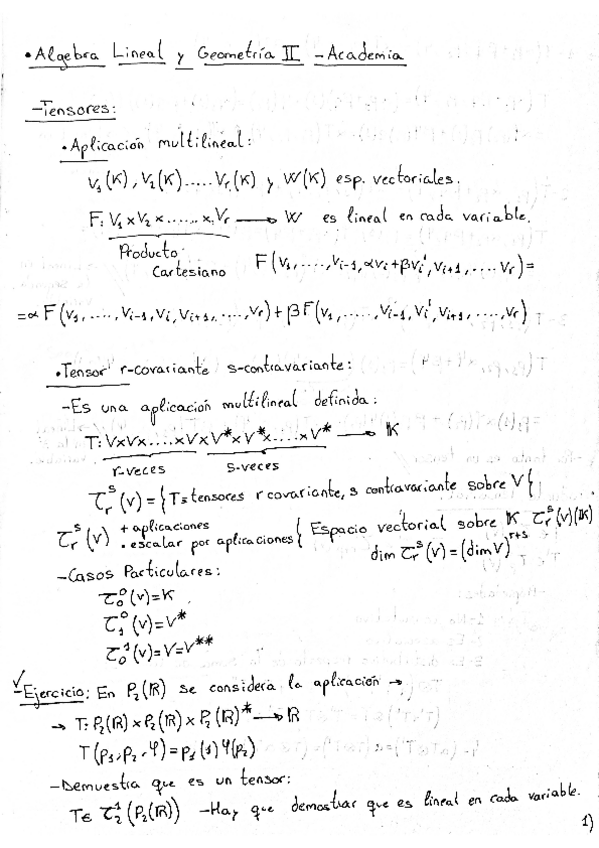 • Algebra Lineal y Geometría II - Academia
- Tensores:
• Aplicación multilineal:
V₁(K), V₂(K)..... Vᵣ(K) y W(K) esp. vectoriales.
F: V₁ x V₂ x ...... x Vᵣ → W es lineal en cada variable.
Producto Cartesiano
F(v₁, ...., vᵢ₋₁, αvᵢ + βvᵢ', vᵢ₊₁, .... vᵣ) =
= α F(v₁, ...., vᵢ₋₁, vᵢ, vᵢ₊₁, ...., vᵣ) + β F(v₁, ...., vᵢ₋₁, vᵢ', vᵢ₊₁, ...., vᵣ)
• Tensor r-covariante s-contravariante:
- Es una aplicación multilineal definida:
T: VxVx.....xVxV*xV*x.....xV* → K
r-veces s-veces
τᵣˢ(V) = { T = tensores r covariante, s contravariante sobre V {
τᵣˢ(V) + aplicaciones • escalar por aplicaciones { Espacio vectorial sobre K τᵣˢ(V)(K)
dim τᵣˢ(V) = (dim V)ʳ⁺ˢ
- Casos Particulares:
τ₀⁰(V) = K
τ₁⁰(V) = V*
τ₀¹(V) = V = V**
✓
- Ejercicio: En P₂(R) se considera la aplicación →
→ T: P₂(R) x P₂(R) x P₂(R)* → R
T(p₁, p₂, φ) = p₁(1) φ(p₂)
- Demuestra que es un tensor:
T ∈ τ₂¹(P₂(R)) - Hay que demostrar que es lineal en cada variable.
1)